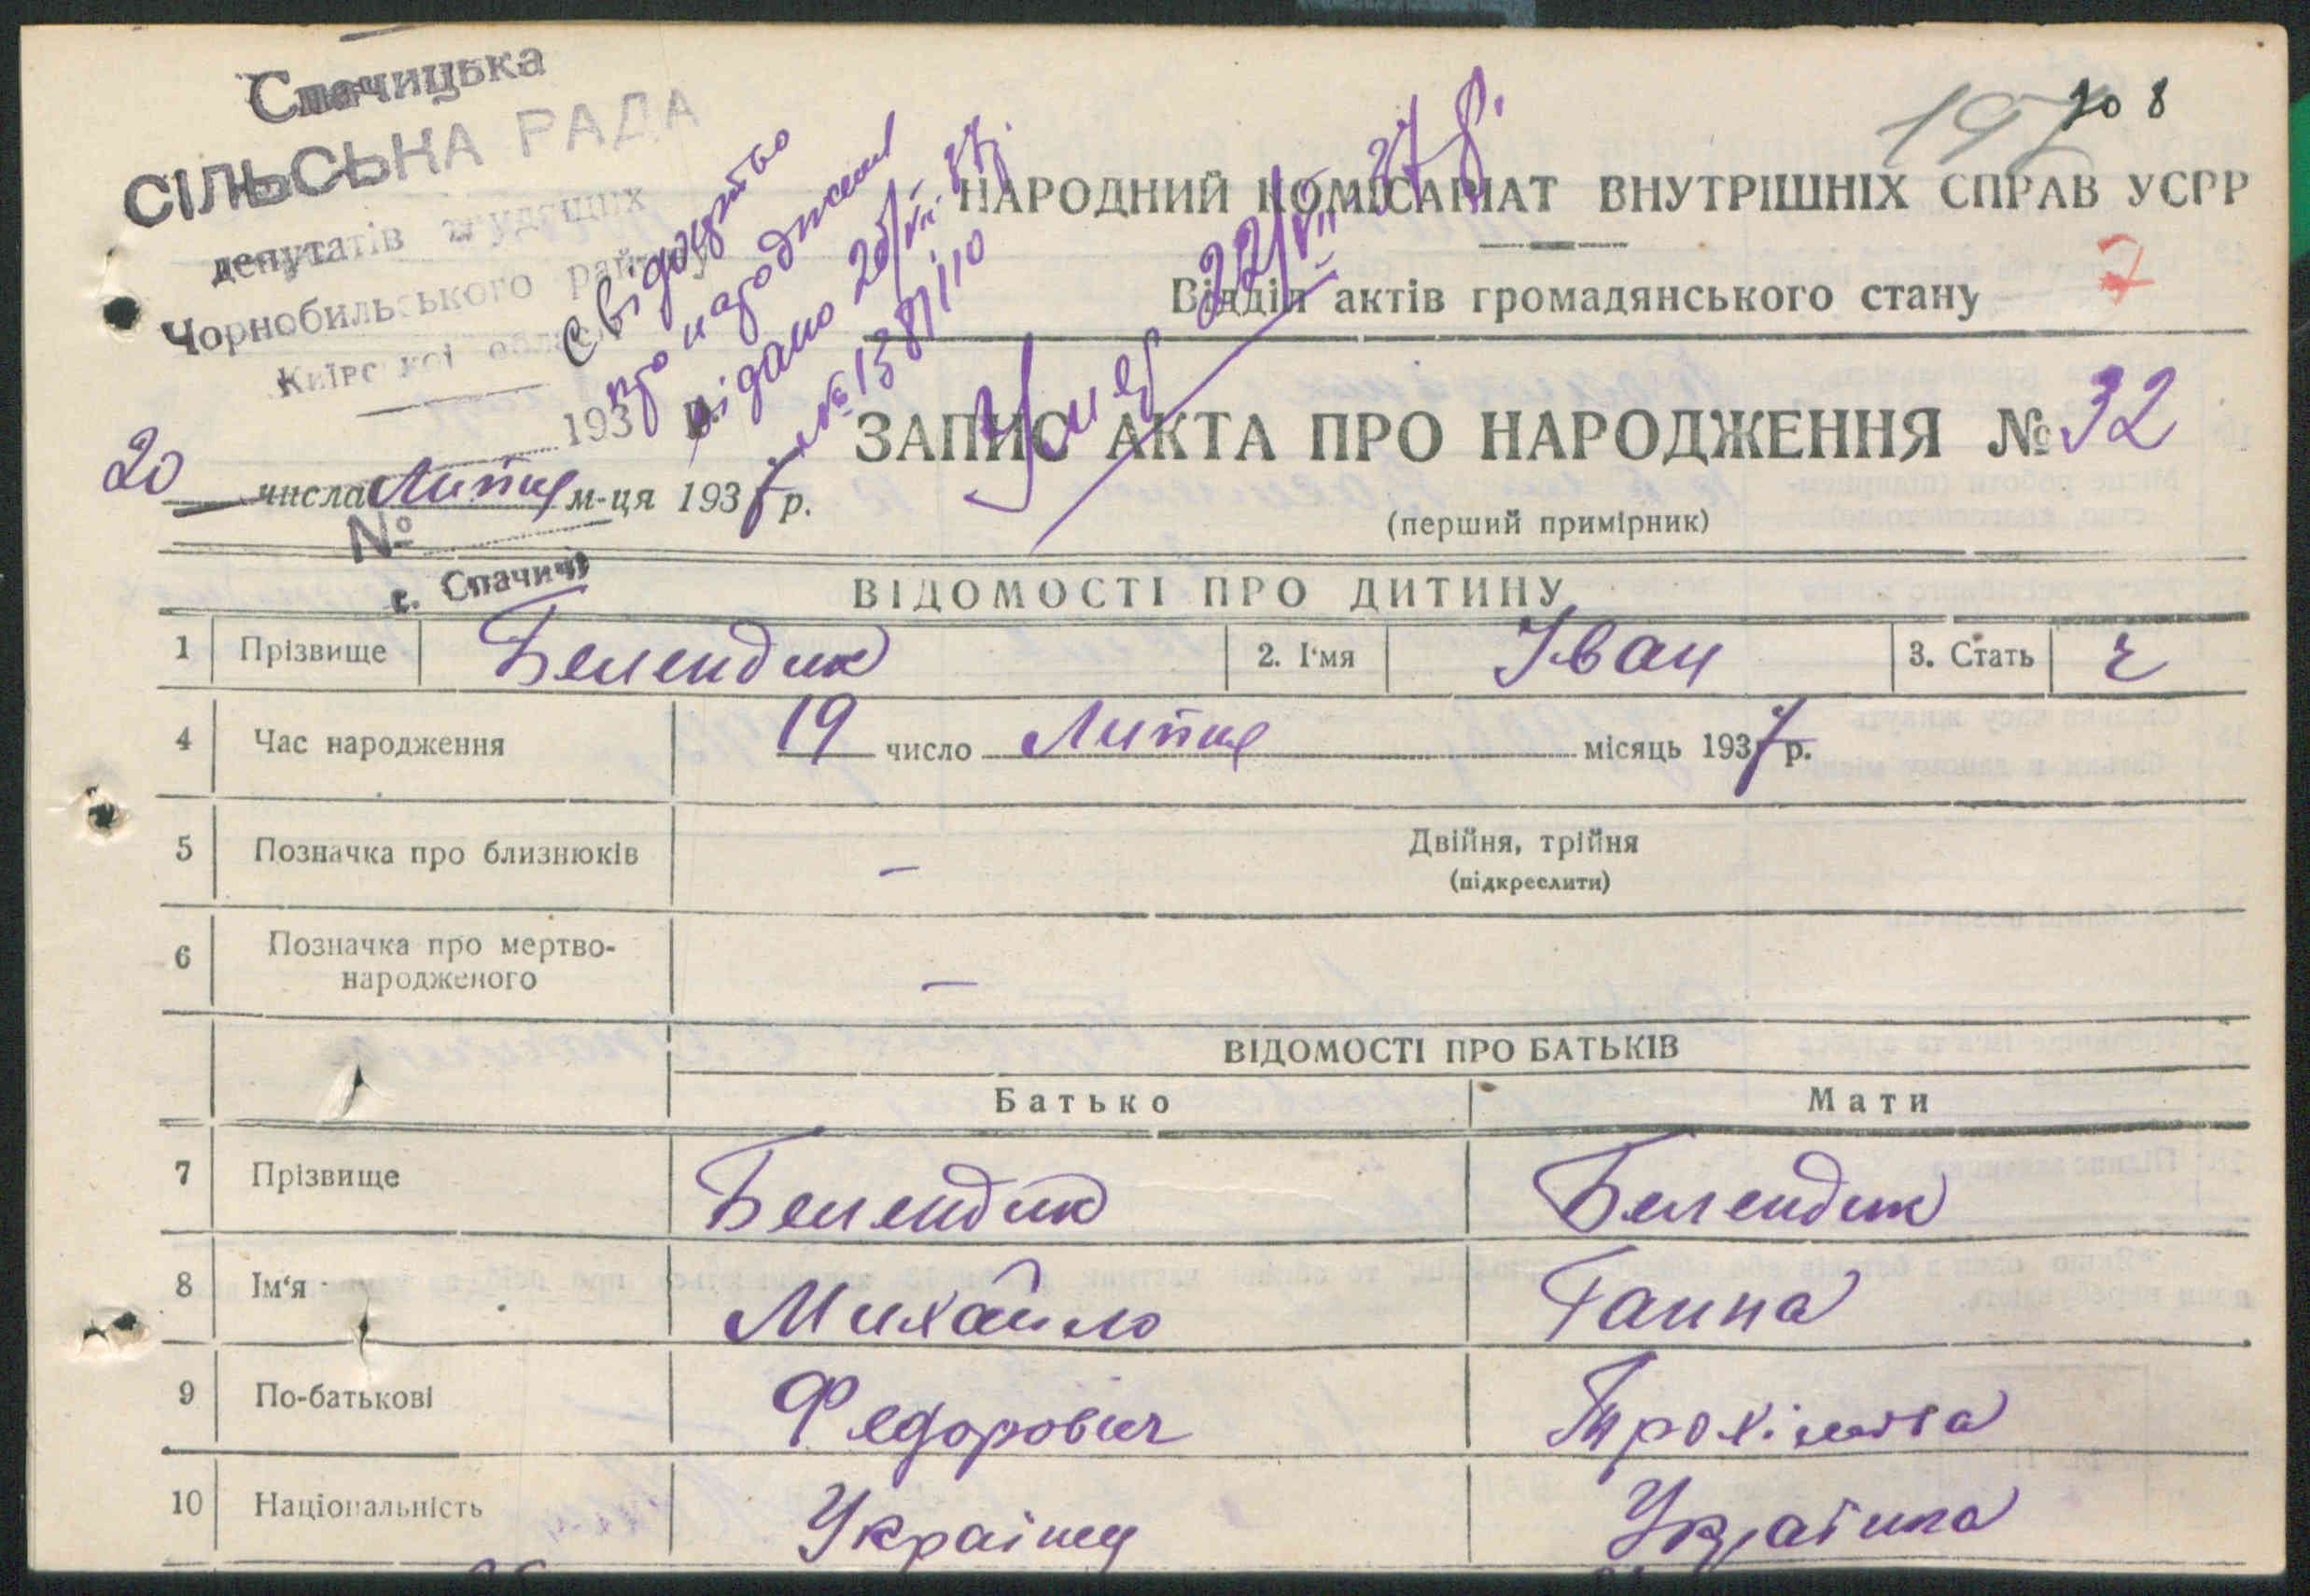 Спачицька
СІЛЬСЬКА РАДА
депутатів трудящих
Чорнобильського району
Київської області
193 р.
№
с. Спачичі
Свідоцтво
про народження
відано 20/VII-37р.
№ 138/110
Умер 22/VII-37 р.
108
7
НАРОДНИЙ КОМІСАРІАТ ВНУТРІШНІХ СПРАВ УСРР
Відділ актів громадянського стану
ЗАПИС АКТА ПРО НАРОДЖЕННЯ № 32
20 числа Липня м-ця 1937 р.
(перший примірник)
ВІДОМОСТІ ПРО ДИТИНУ
1 Прізвище Белендик 2. І'мя Іван 3. Стать ч
4 Час народження 19 число Липня місяць 1937 р.
5 Позначка про близнюків – Двійня, трійня
(підкреслити)
6 Позначка про мертво-
народженого –
ВІДОМОСТІ ПРО БАТЬКІВ
Батько Мати
7 Прізвище Белендик Белендик
8 Ім'я Михайло Ганна
9 По-батькові Федорович Трохімівна
10 Національність Українец Українка